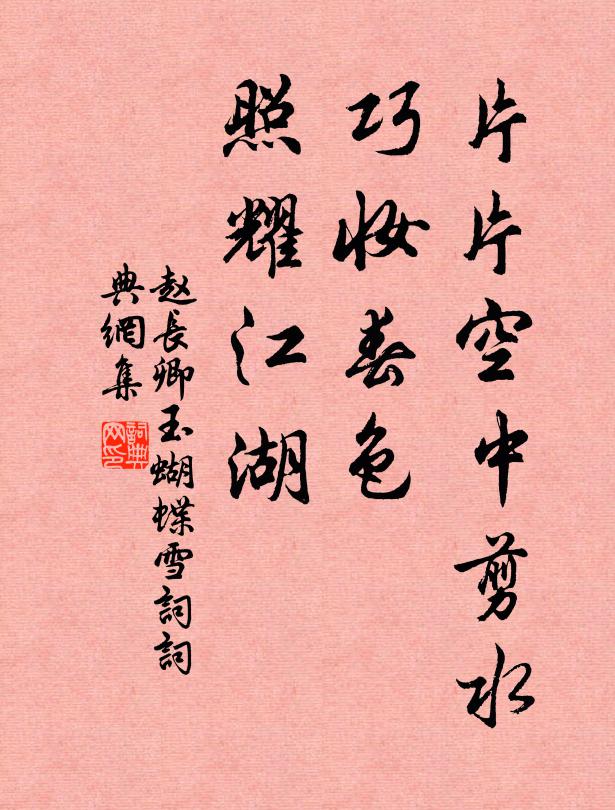 片片空中剪水
巧妆春色
照耀江湖
赵長卿玉蝴蝶雪詞詞
典網集
詞典
网印